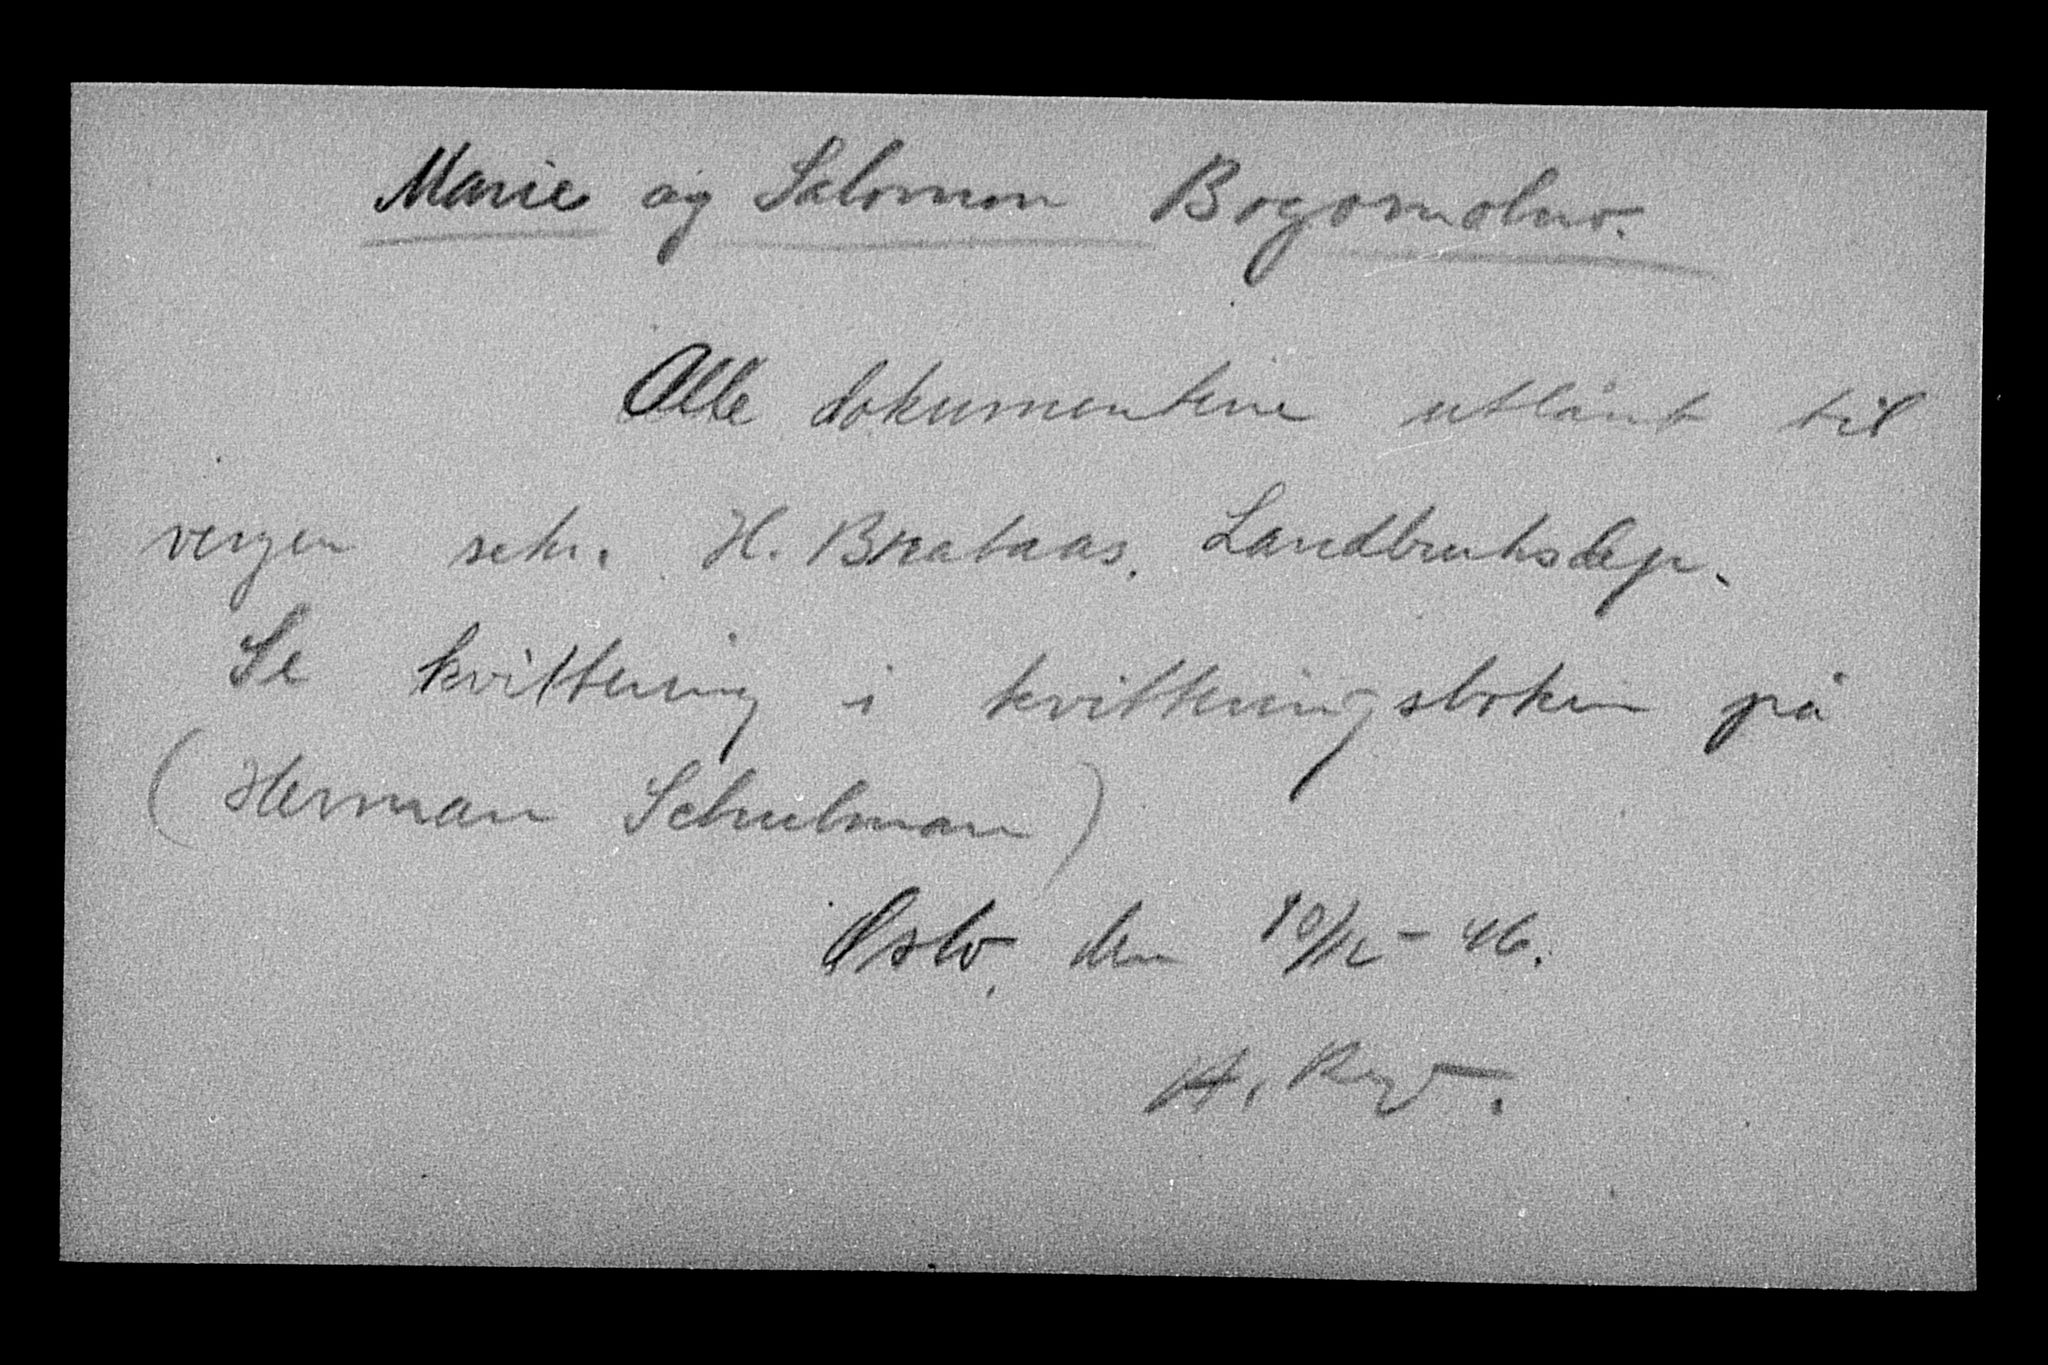 Marie og Salomon Bogomolno.
Alle dokumentene utlånt til
vergen sekr. H. Brataas. Landbruksdep.
Se kvittering i kvitteringsboken på
(Herman Schulman)
Oslo, den 10/12 - 46.
A.